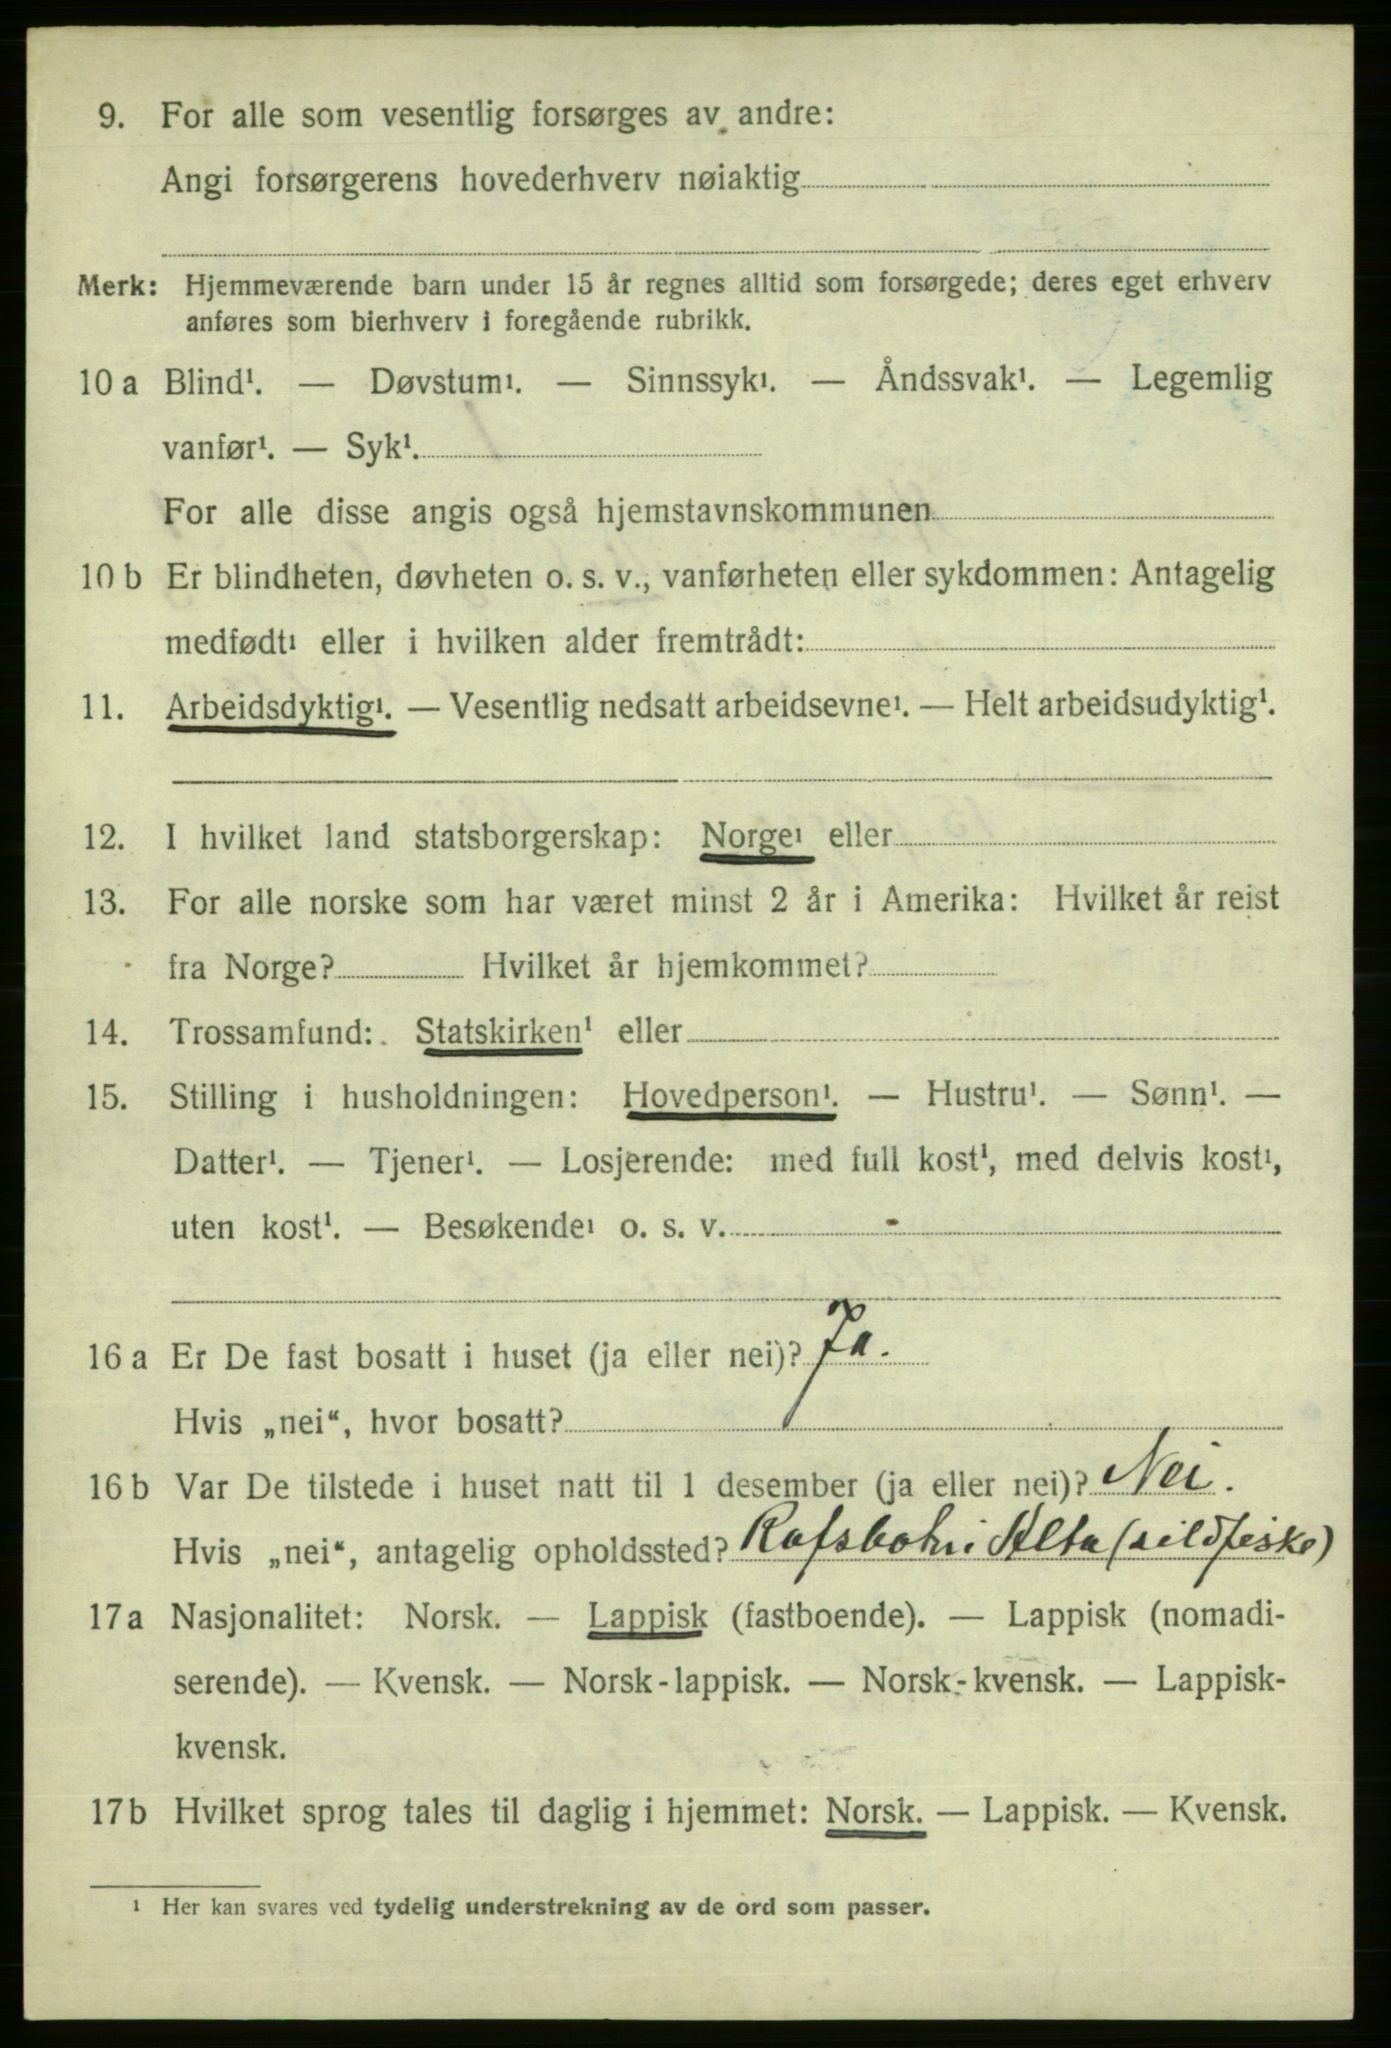 9. For alle som vesentlig forsørges av andre:
Angi forsørgerens hovederhverv nøiaktig
Merk: Hjemmeværende barn under 15 år regnes alltid som forsørgede; deres eget erhverv
anføres som bierhverv i foregående rubrikk.
10 a Blind¹. — Døvstum¹. — Sinnssyk¹. — Åndssvak¹. — Legemlig
vanfør¹. — Syk¹.
For alle disse angis også hjemstavnskommunen
10 b Er blindheten, døvheten o. s. v., vanførheten eller sykdommen: Antagelig
medfødt¹ eller i hvilken alder fremtrådt:
11. Arbeidsdyktig¹. — Vesentlig nedsatt arbeidsevne¹. — Helt arbeidsudyktig¹.
12. I hvilket land statsborgerskap: Norge¹ eller
13. For alle norske som har været minst 2 år i Amerika: Hvilket år reist
fra Norge? Hvilket år hjemkommet?
14. Trossamfund: Statskirken¹ eller
15. Stilling i husholdningen: Hovedperson¹. — Hustru¹. — Sønn¹. —
Datter¹. — Tjener¹. — Losjerende: med full kost¹, med delvis kost¹,
uten kost¹. — Besøkende¹ o. s. v.
16 a Er De fast bosatt i huset (ja eller nei)? Ja.
Hvis „nei“, hvor bosatt?
16 b Var De tilstede i huset natt til 1 desember (ja eller nei)? Nei.
Hvis „nei“, antagelig opholdssted? Rafsbotn i Alta (sildfiske)
17 a Nasjonalitet: Norsk. — Lappisk (fastboende). — Lappisk (nomadi-
serende). — Kvensk. — Norsk-lappisk. — Norsk-kvensk. — Lappisk-
kvensk.
17 b Hvilket sprog tales til daglig i hjemmet: Norsk. — Lappisk. — Kvensk.
¹ Her kan svares ved tydelig understrekning av de ord som passer.